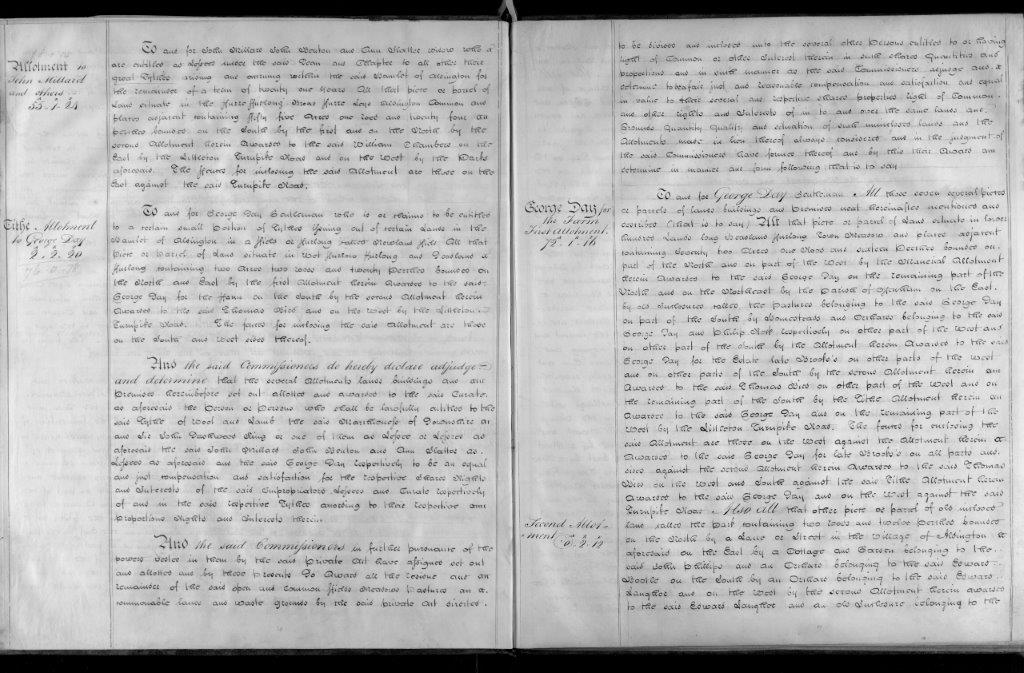 Allotment to
John Millard
and others
55. 1. 24
To and for John Millard John Bonton and Ann Slatter Widow who
are entitled as Lessees under the said Dean and Chapter to all other there
great Tythes arising and accruing within the said Hamlet of Aldington for
the remainder of a term of twenty one years All that piece or parcel of
Land situate in the Furze Furlong Broad Furze Leys Aldington Common and
places adjacent containing fifty five Acres one rood and twenty four
perches bounded on the South by the first and on the North by the
second Allotment herein Awarded to the said William Chambers on the
East by the Littleton Turnpike Road and on the West by the Parks
aforesaid. The fences for inclosing the said Allotment are those on the
East against the said Turnpike Road.
Tithe Allotment
to George Day
2. 2. 20
To and for George Day Gentleman who is or claims to be entitled
to a certain small Portion of Tythes issuing out of certain Lands in the
Hamlet of Aldington in a field or furlong called Newland field All that
Piece or Parcel of Land situate in Wot furlong and
furlong containing two Acres two roods and twenty Perches bounded on
the North and East by the first Allotment herein Awarded to the said
George Day for the Farm on the South by the second Allotment herein
Awarded to the said Thomas Bird and on the West by the Littleton
Turnpike Road. The fences for inclosing the said Allotment are those
on the South and West sides thereof.
And the said Commissioners do hereby declare adjudge
and determine that the several Allotments lands buildings and
Premises hereinbefore set out allotted and awarded to the said Curate
as aforesaid the Person or Persons who shall be lawfully entitled to the
said Tythe of Wool and Lamb the said Marchioness of Downshire
and Sir John Dashwood King or one of them as Lessee or Lessees as
aforesaid the said John Millard John Bonton and Ann Slatter as
Lessees as aforesaid and the said George Day respectively to be an equal
and just compensation and satisfaction for the respective Shares Rights
and Interests of the said Impropriators Lessees and Curate respectively
of and in the said respective Tythes according to their respective
Proportions Rights and Interests therein.
And the said Commissioners in further pursuance of the
powers vested in them by the said Private Act have assigned set out
and allotted and by these Presents Do Award all the residue and
remainder of the said open and Common fields Meadows Pastures and
commonable lands and waste grounds by the said private Act directed
to be divided and inclosed unto the several other Persons entitled to or having
right of Common or other Interest therein in such shares Quantities and
proportions and in such manner as the said Commissioners adjudge and
determine to be a fair just and reasonable compensation and satisfaction and equal
in value to their several and respective shares properties right of Common
and other rights and Interests of in to and over the same lands and
Grounds Quantity Quality and situation of such uninclosed lands and the
Allotments made in lieu thereof always considered and in the judgment of
the said Commissioners have formed thereof and by this their Award
determine in manner and form following that is to say
George Day for
the Farm
First Allotment
72. 1. 16
To and for George Day Gentleman All those seven several pieces
or parcels of land buildings and Premises next hereinafter mentioned and
described (that is to say) All that piece or Parcel of Land situate in lower
hundred Lands long Deadland furlong Town Meadow and places adjacent
containing Seventy two Acres one Rood and sixteen Perches bounded on
part of the North and on part of the West by the Vicarial Allotment
herein Awarded to the said George Day on the remaining part of the
North and on the Northeast by the Parish of Offenham on the East
by old Inclosures called the Pastures belonging to the said George Day
on part of the South by Homesteads and Orchards belonging to the said
George Day and Philip respectively on other part of the West and
on other part of the South by the Allotment herein Awarded to the said
George Day for the Estate late Brooke's on other parts of the West
and on other parts of the South by the second Allotment herein
Awarded to the said Thomas Bird on other part of the West and on
the remaining part of the South by the Tithe Allotment herein
Awarded to the said George Day and on the remaining part of the
West by the Littleton Turnpike Road. The fences for enclosing the
said Allotment are those on the West against the Allotment herein
Awarded to the said George Day for late Brooke's on all parts and
sides against the second Allotment herein Awarded to the said Thomas
Bird on the West and South against the said Tithe Allotment herein
Awarded to the said George Day and on the West against the said
Turnpike Road Also All that other piece or parcel of old inclosed
Second Allot-
ment
0. 2. 12
land called the Park containing two roods and twelve Perches bounded
on the North by a Lane or Street in the Village of Aldington
aforesaid on the East by a Cottage and Garden belonging to the
said John Phillips and an Orchard belonging to the said Edward
on the South by an Orchard belonging to the said Edward
Laugher and on the West by the second Allotment herein awarded
to the said Edward Laugher and an old Inclosure belonging to the